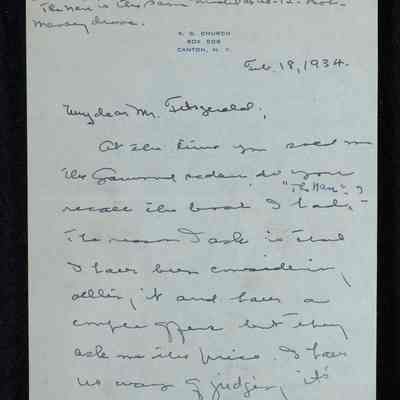 The Hen is the same
Massey drove.
A. D. CHURCH
BOX 509
CANTON, N. Y.
Feb. 18, 1934.
My dear Mr. Fitzgerald,
At the time you sold me
the Gammel reader do you
"The Hen",
recall the boat I had,
The reason I ask is that
I have been considering
selling it and have a
couple offers but they
ask me the price. I have
no way of judging it's